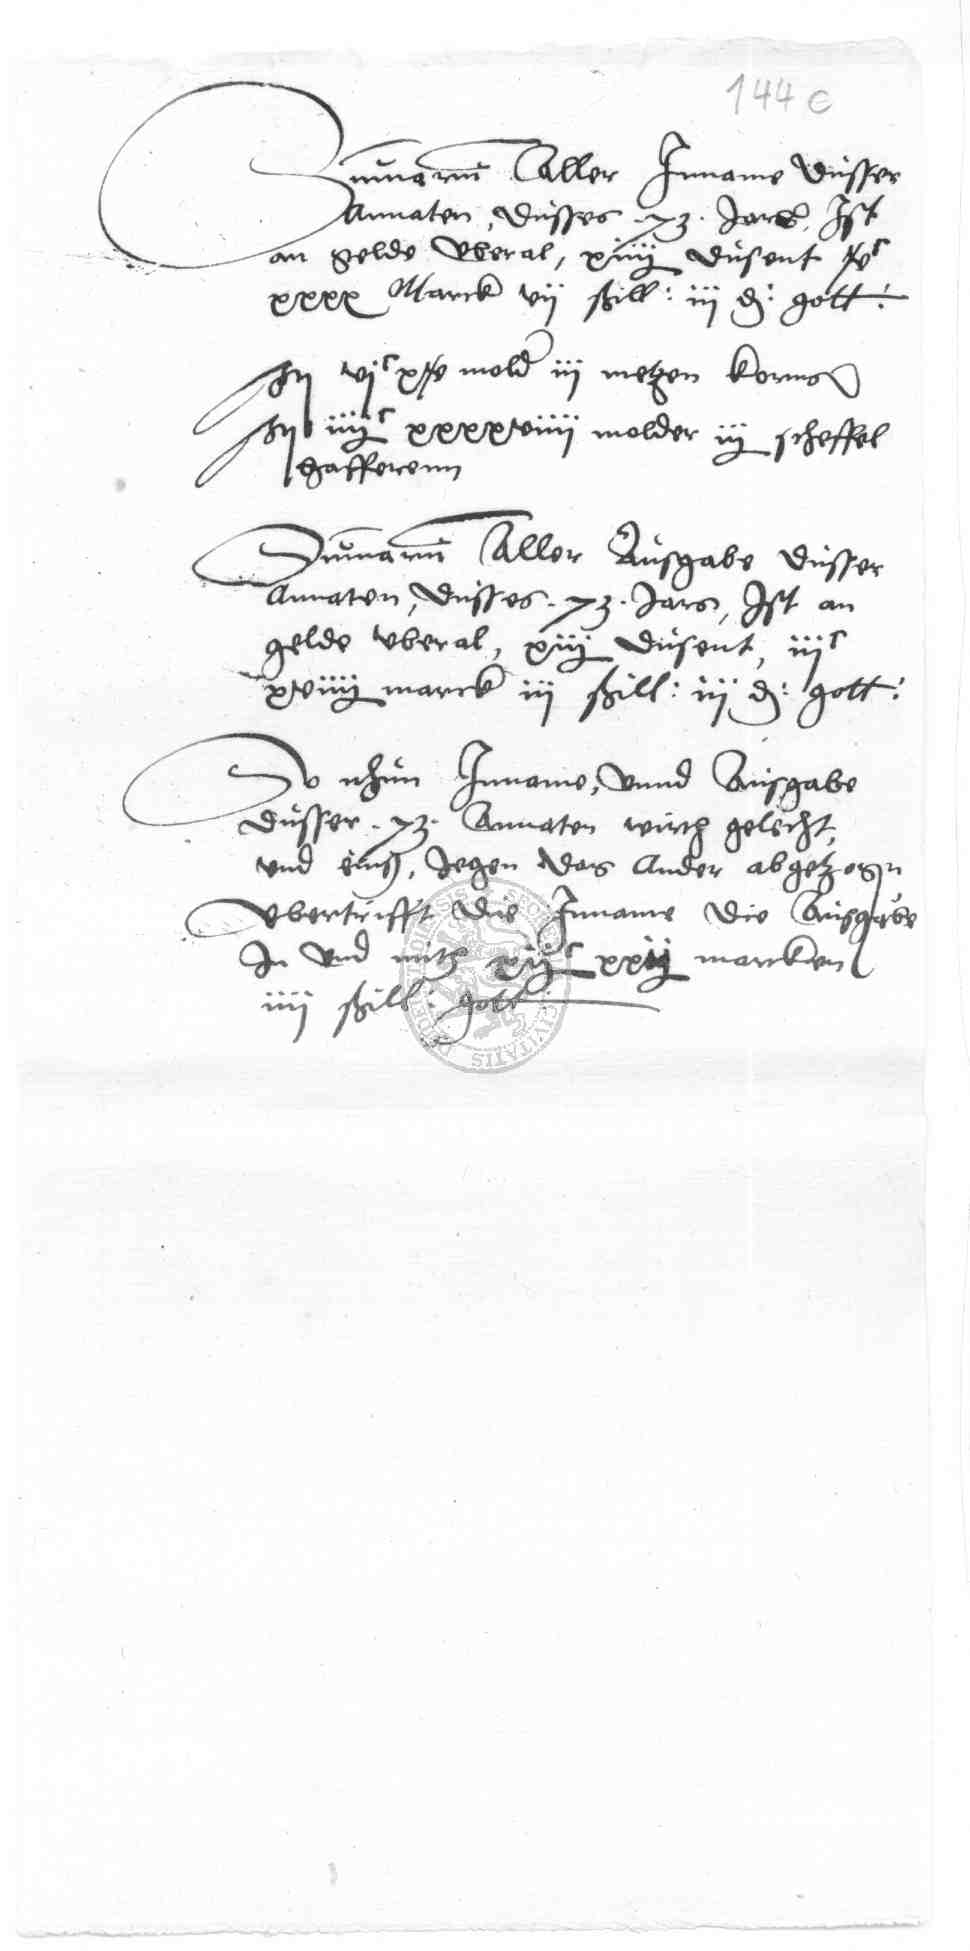 144 c
Summarum Aller Inname dusser
Annaten, dusses .73. Jars, Ist
an gelde vberal, xiiij dusent vᶜ
xxxx Marck vij ßill: iij d: gott:
vjᶜ xv mold iij metzen korns
iiijᶜ xxxxviiij molder iij scheffel
hafferenn
Summarum Aller Ausgabe dusser
Annaten, dusses .73. Jars, Ist an
gelde vberal, xiij dusent, iijᶜ
xviiij marck iij ßill: iij d: gott:
So nhun Inname, vnnd Ausgabe
dusser .73. Annaten wirth gelecht,
vnd eins, Jegen das Ander abgetzogen
Vbertrifft die Inname die Ausgabe
In vnd mith xijᶜ xxj marcken
iiij ßill: gott:
CIVITATIS